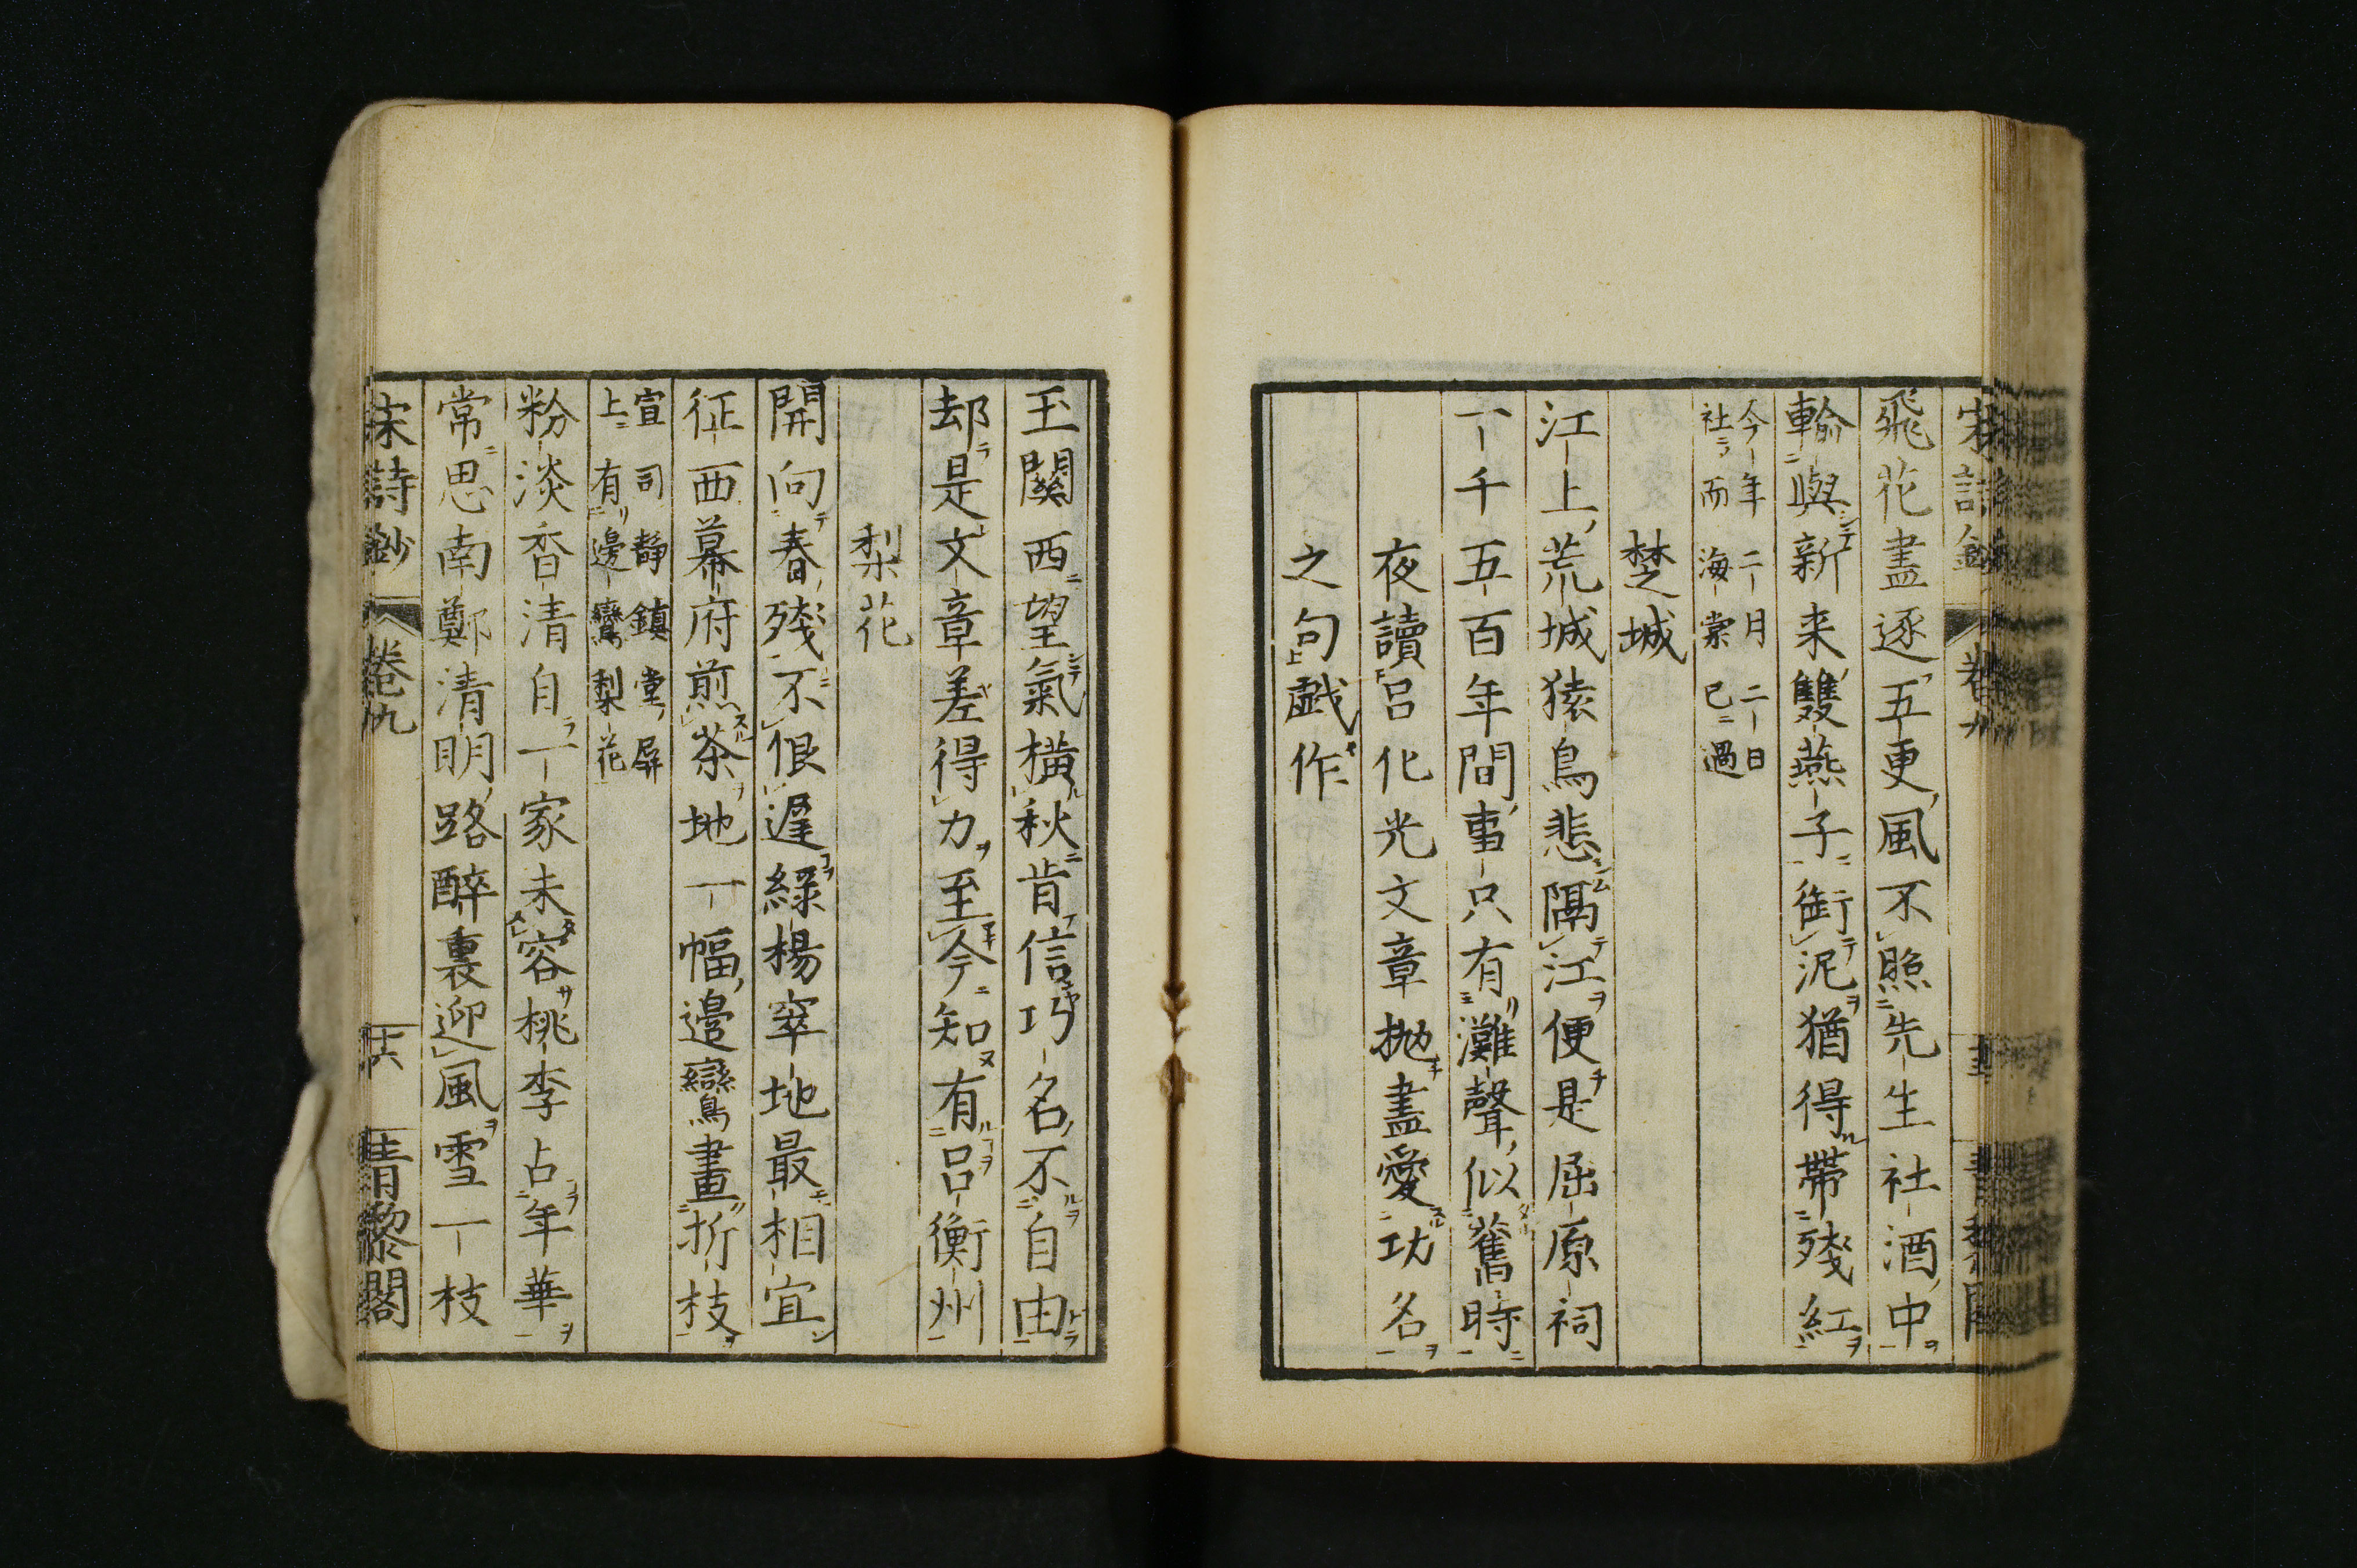 飛花盡逐五更風不照先生社酒中
輸與新来雙燕子銜泥猶得帶殘紅
今年二月二日
社而海棠已過
楚城
江上荒城猿鳥悲隔江便是屈原祠
一千五百年間事只有灘聲似舊時
夜讀呂化光文章抛盡愛功名
之句戯作
玉關西望氣橫秋肯信功名不自由
却是文章差得力至今知有呂衡州
梨花
開向春殘不恨遲綠楊窣地最相宜
征西幕府煎茶地一幅邊鸞畫折枝
宣司靜鎮堂屏
上有邊鸞梨花
粉淡香清自一家未容桃李占年華
常思南鄭清明路醉裏迎風雪一枝
宋詩鈔 卷九 十六 青黎閣